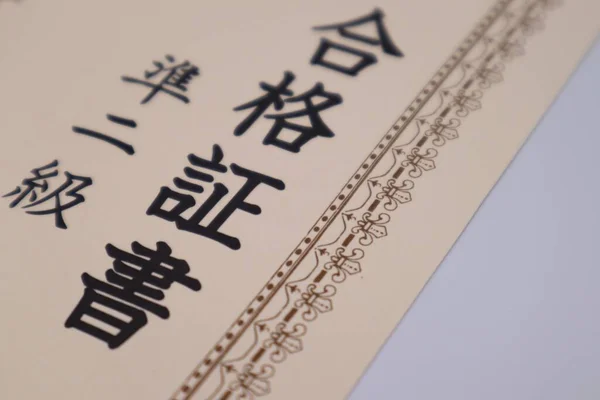 合格証書
準二級